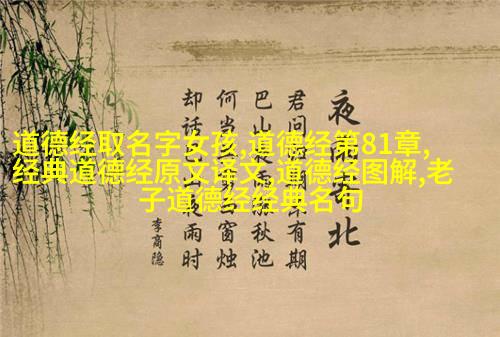 道德经取名字女孩,道德经第81章,
经典道德经原文译文,道德经图解,老
子道德经经典名句
夜北
君问有期
巴山秋池
何当窗烛
却话雨时
李商隐